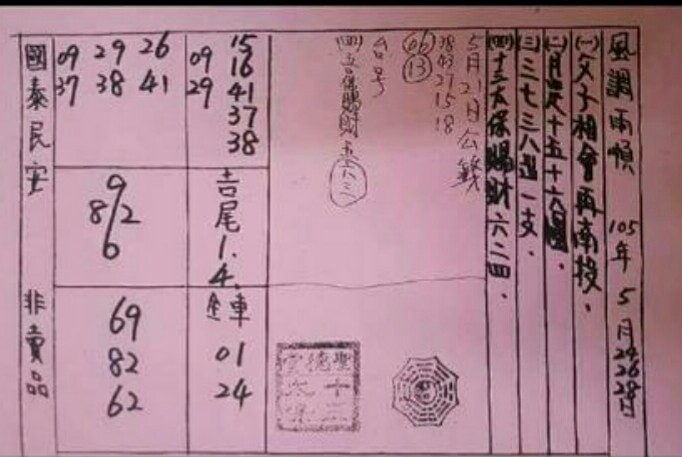 風調雨順 105年 5月24 26 28日
(一)父子相會再南投.
(二)月是十五十六圓.
(三)三七三八過一支.
(四)十三太保賜財六二四.
5月21日公籤
38 43 27 15 18
06 13
台号
15
09 16
29 41
37
38
吉尾
1.
4.
車
01
24
09 29 26
37 38 41
9
8/2
6
69
82
62
國泰民安 非賣品
聖德堂
十三太保